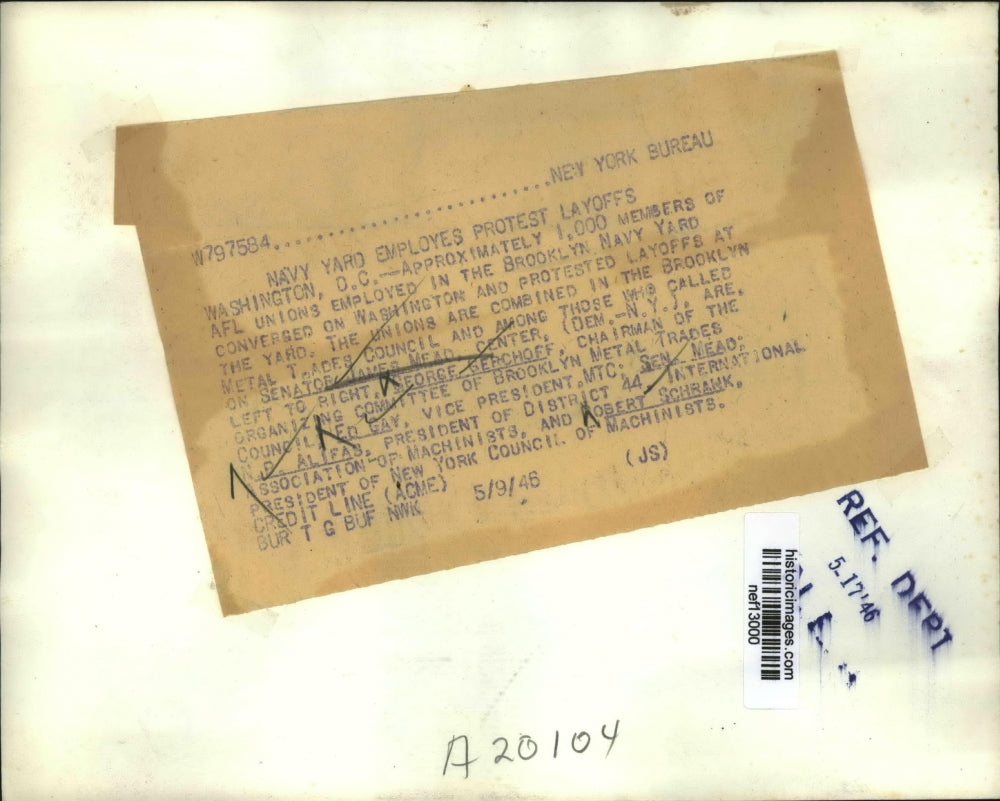 W797584........................................NEW YORK BUREAU
NAVY YARD EMPLOYES PROTEST LAYOFFS
WASHINGTON, D.C.--APPROXIMATELY 1,000 MEMBERS OF
AFL UNIONS EMPLOYED IN THE BROOKLYN NAVY YARD
CONVERGED ON WASHINGTON AND PROTESTED LAYOFFS AT
THE YARD. THE UNIONS ARE COMBINED IN THE BROOKLYN
METAL TRADES COUNCIL AND AMONG THOSE WHO CALLED
ON SENATOR JAMES MEAD, CENTER, (DEM.-N.Y.), ARE,
LEFT TO RIGHT, GEORGE, CHAIRMAN OF THE
ORGANIZING COMMITTEE OF BROOKLYN METAL TRADES
COUNCIL; ED GAY, VICE PRESIDENT, MTC; SEN. MEAD;
ALIFAS, PRESIDENT OF DISTRICT 44, INTERNATIONAL
ASSOCIATION OF MACHINISTS, AND ROBERT SCHRANK,
PRESIDENT OF NEW YORK COUNCIL OF MACHINISTS.
CREDIT LINE (ACME) 5/9/46 (JS)
BUR T G BUF NWK
REF. DEPT
5-17'46
historicimages.com
nef13000
A20104